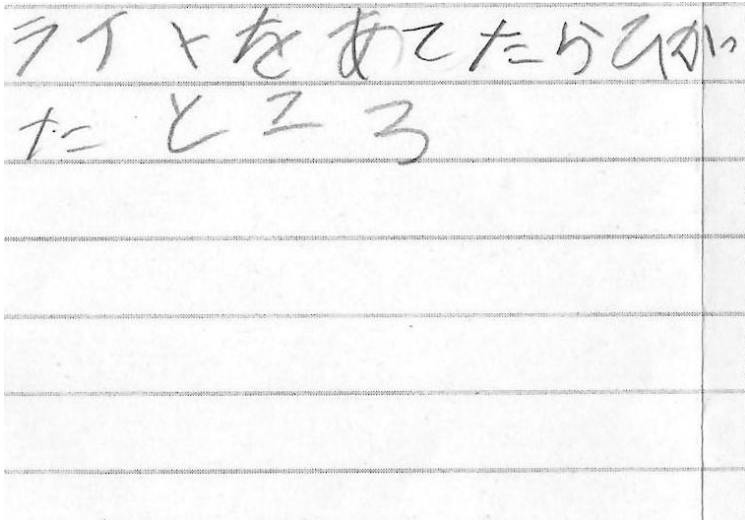 ライトをあてたらひかっ
たところ